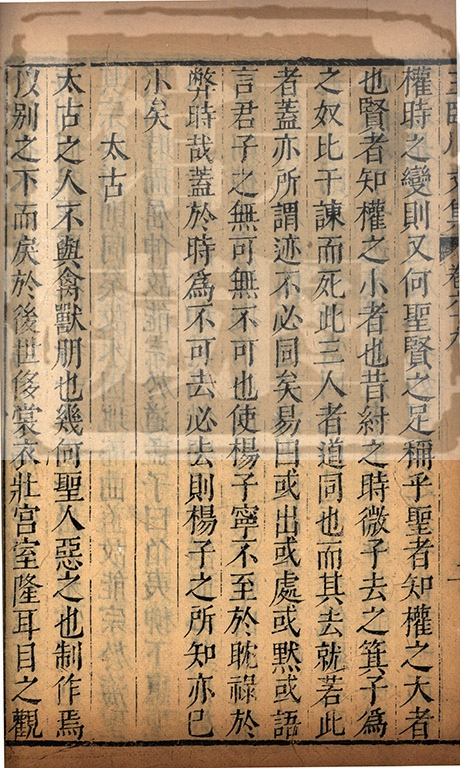 王臨川文集 卷六十九
權時之變則又何聖賢之足稱乎聖者知權之大者
也賢者知權之小者也昔紂之時微子去之箕子為
之奴比干諫而死此三人者道同也而其去就若此
者蓋亦所謂迹不必同矣易曰或出或處或默或語
言君子之無可無不可也使楊子寧不至於耽祿於
弊時哉蓋於時為不可去必去則楊子之所知亦已
小矣
太古
太古之人不與禽獸朋也幾何聖人惡之也制作焉
以别之下而戾於後世侈裳衣壯宮室隆耳目之觀